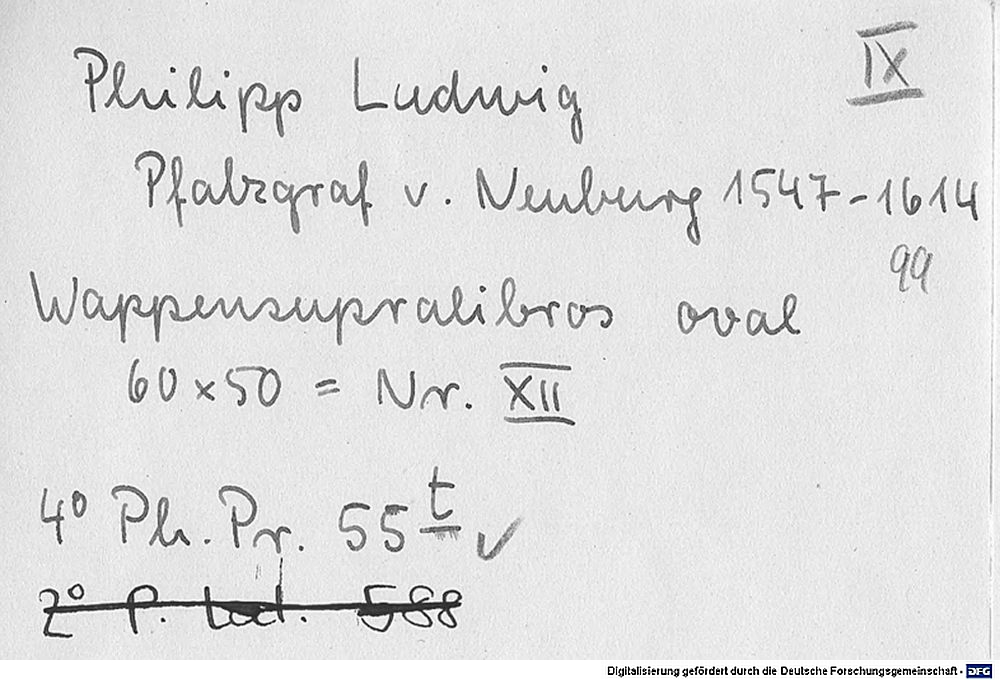 IX
Philipp Ludwig
Pfalzgraf v. Neuburg 1547-1614
99
Wappensupralibros oval
60 x 50 = Nr. XII
4° Ph. Pr. 55 t ✓
2° P. lat. 588
Digitalisierung gefördert durch die Deutsche Forschungsgemeinschaft - DFG